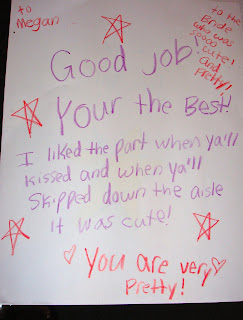 to
Megan
to the
Bride
who was
sooo cute!
and
Pretty!
Good job
Your the Best!
I liked the part when ya'll
kissed and when ya'll
skipped down the aisle
it was cute!
You are very
Pretty!